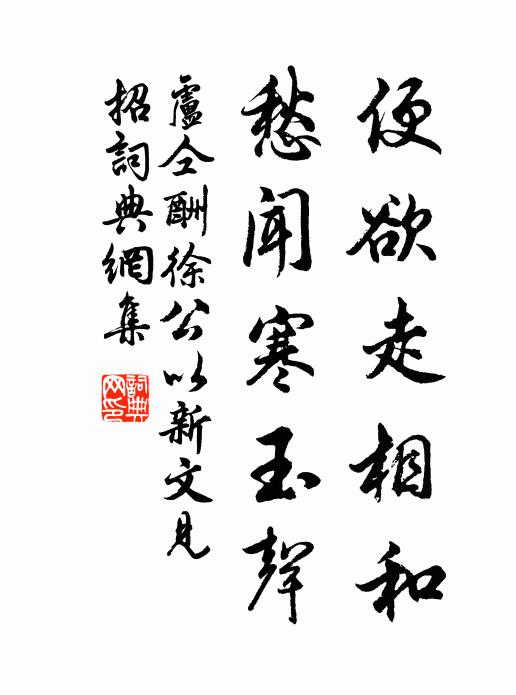 便欲走相和
愁聞寒玉聲
盧仝酬徐公以新文見
招詞典網集
詞典
网印